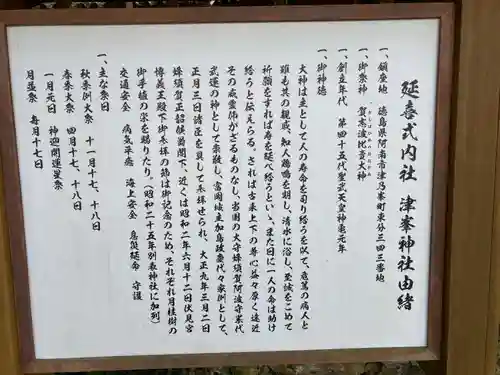 延喜式内社 津峯神社由緒
一、鎮座地 徳島県阿南市津乃峰町東分三四三番地
一、御祭神 賀志波比賣大神
かしはひめのおおかみ
一、創立年代 第四十五代聖武天皇神亀元年
一、御神徳
大神は主として人の寿命を司り給うを以て、危篤の病人と
雖も其の親戚、知人鶏鳴を期し、清水に浴し、至誠をこめて
祈願をすれば寿を延べ給うといゝ、また日に一人の命は助け
給うと伝えらる。されば古来上下の尊心益々厚く遠近
その威霊を仰がざるものなし、当国の大守蜂須賀阿波守累代
武運の神として崇敬し、富岡城主加島政慶代々家例として、
正月三日諸臣を具して参拝せられ、大正九年三月二日
蜂須賀正韶候爵閣下、近くは昭和二年六月十二日伏見宮
博義王殿下御参拝の節は御記念のため、それぞれ月桂樹の
御手植の栄を賜りたり。(昭和二十五年別表神社に加列)
交通安全 病気平癒 海上安全 息災延命 守護
一、主な祭日
秋季例大祭 十一月十七、十八日
春季大祭 四月十七、十八日
一月元旦 神迎開運星祭
月並祭 毎月十七日